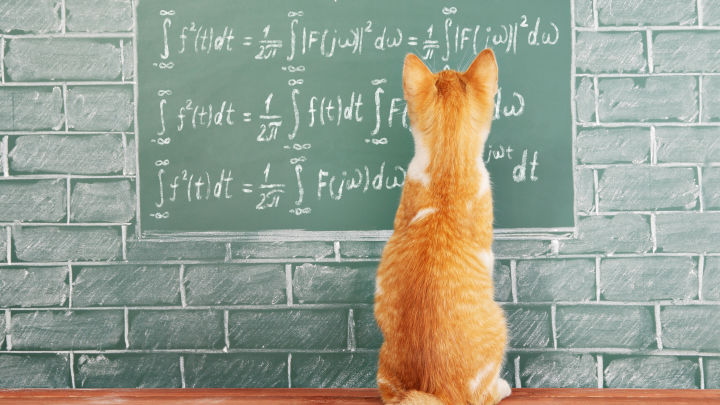 ∞∫-∞ f²(t)dt = 1/2π ∞∫-∞ |F(jω)|²dω = 1/π ∞∫-∞ |F(jω)|²dω
∞∫-∞ f²(t)dt = 1/2π ∞∫-∞ f(t)dt ∞∫-∞ F( dω
∞∫-∞ f²(t)dt = 1/2π ∞∫-∞ F(jω)dω jωt dt